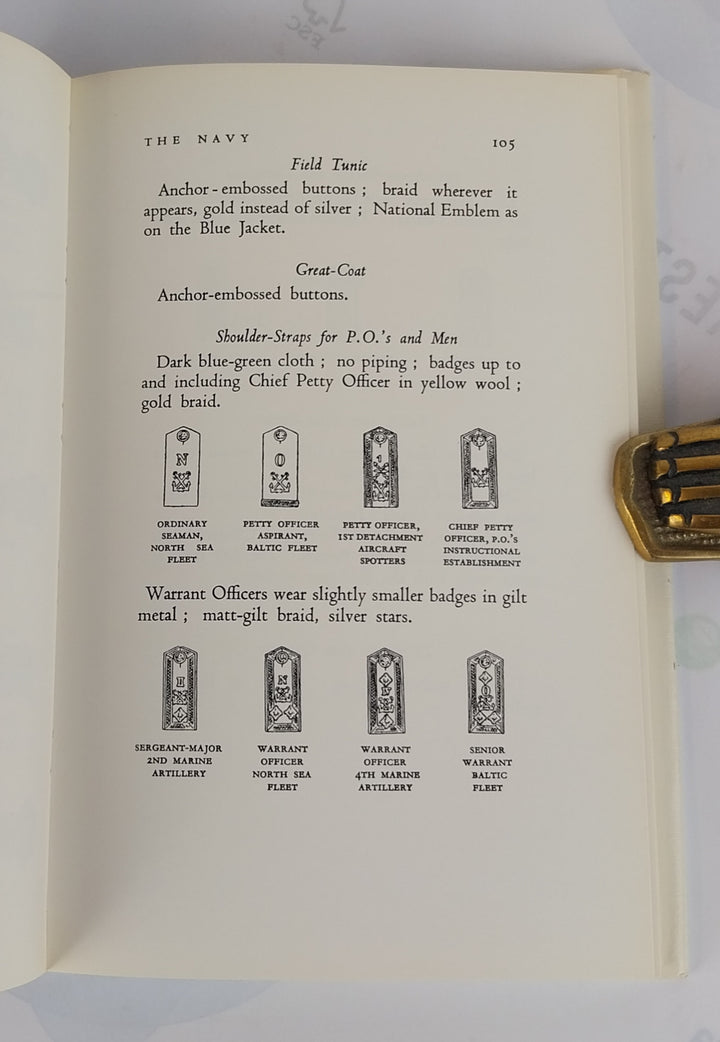 THE NAVY 105
Field Tunic
Anchor-embossed buttons ; braid wherever it
appears, gold instead of silver ; National Emblem as
on the Blue Jacket.
Great-Coat
Anchor-embossed buttons.
Shoulder-Straps for P.O.'s and Men
Dark blue-green cloth ; no piping ; badges up to
and including Chief Petty Officer in yellow wool ;
gold braid.
N
O
ORDINARY
SEAMAN,
NORTH SEA
FLEET
PETTY OFFICER
ASPIRANT,
BALTIC FLEET
PETTY OFFICER,
1ST DETACHMENT
AIRCRAFT
SPOTTERS
CHIEF PETTY
OFFICER, P.O.'S
INSTRUCTIONAL
ESTABLISHMENT
Warrant Officers wear slightly smaller badges in gilt
metal ; matt-gilt braid, silver stars.
II
N
IV
O
SERGEANT-MAJOR
2ND MARINE
ARTILLERY
WARRANT
OFFICER
NORTH SEA
FLEET
WARRANT
OFFICER
4TH MARINE
ARTILLERY
SENIOR
WARRANT
BALTIC
FLEET
ESC